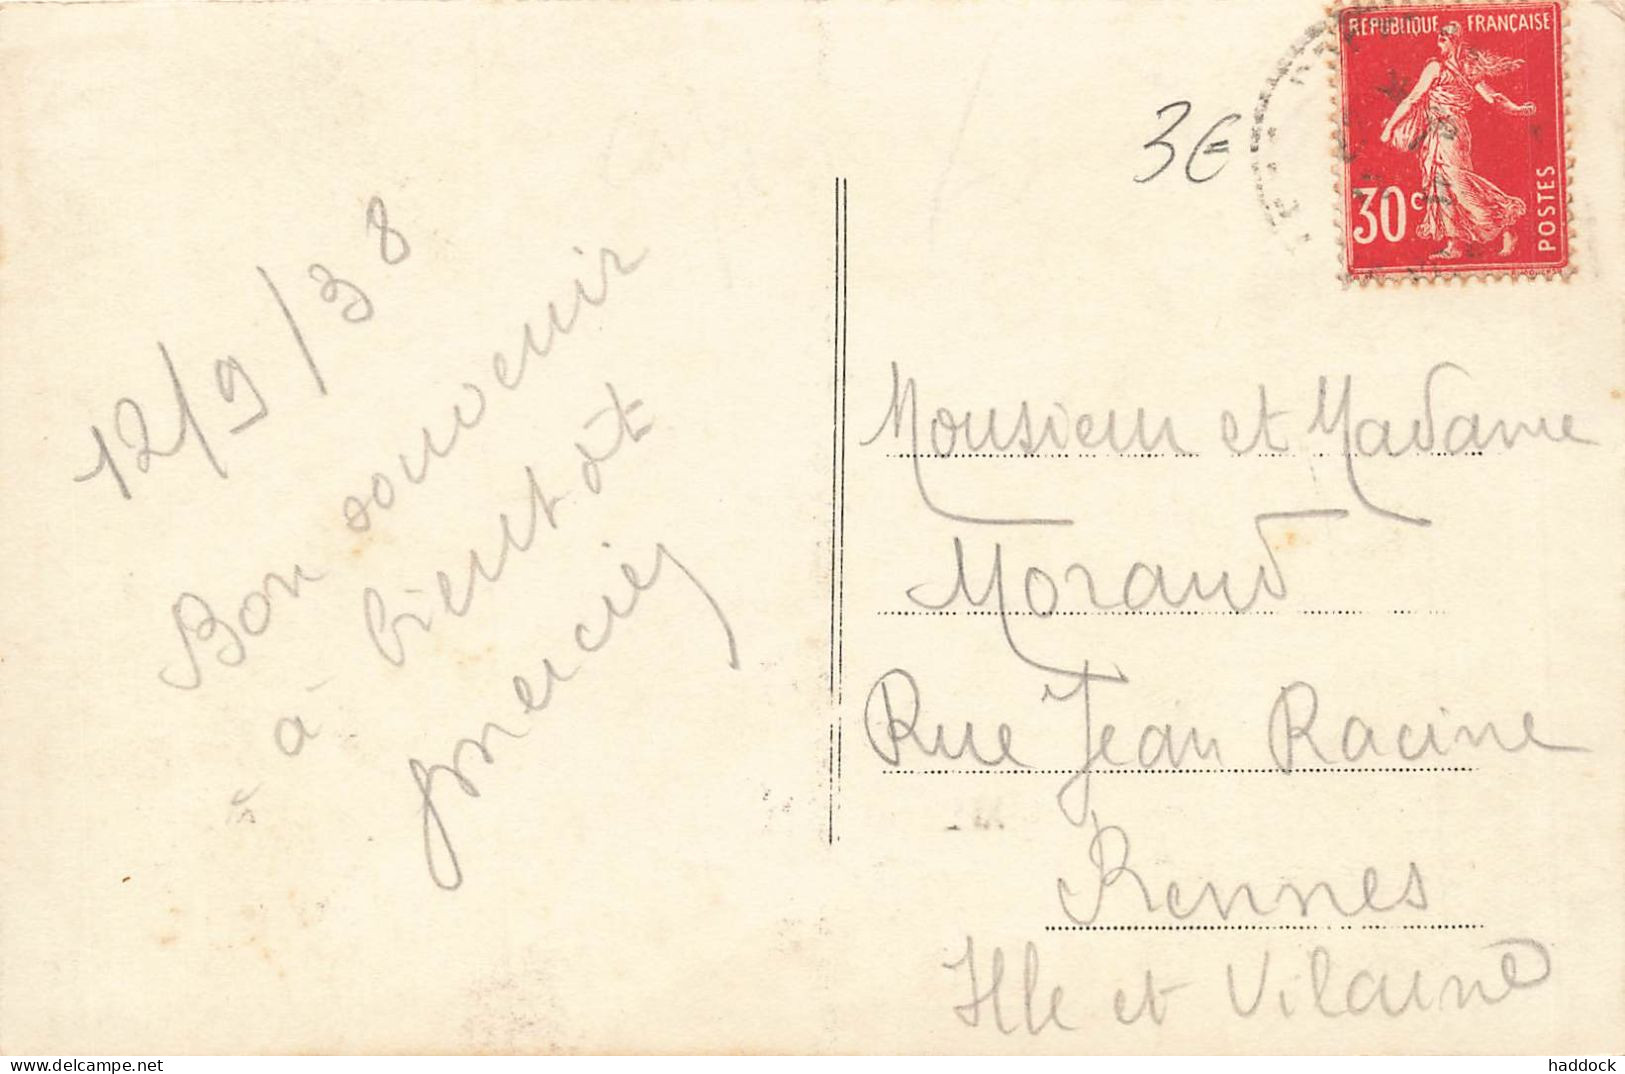 12/9/38
Bon souvenir
à bientôt
3€
RÉPUBLIQUE FRANÇAISE
30c
POSTES
Monsieur et Madame
Morand
Rue Jean Racine
Rennes
Ille et Vilaine
haddock